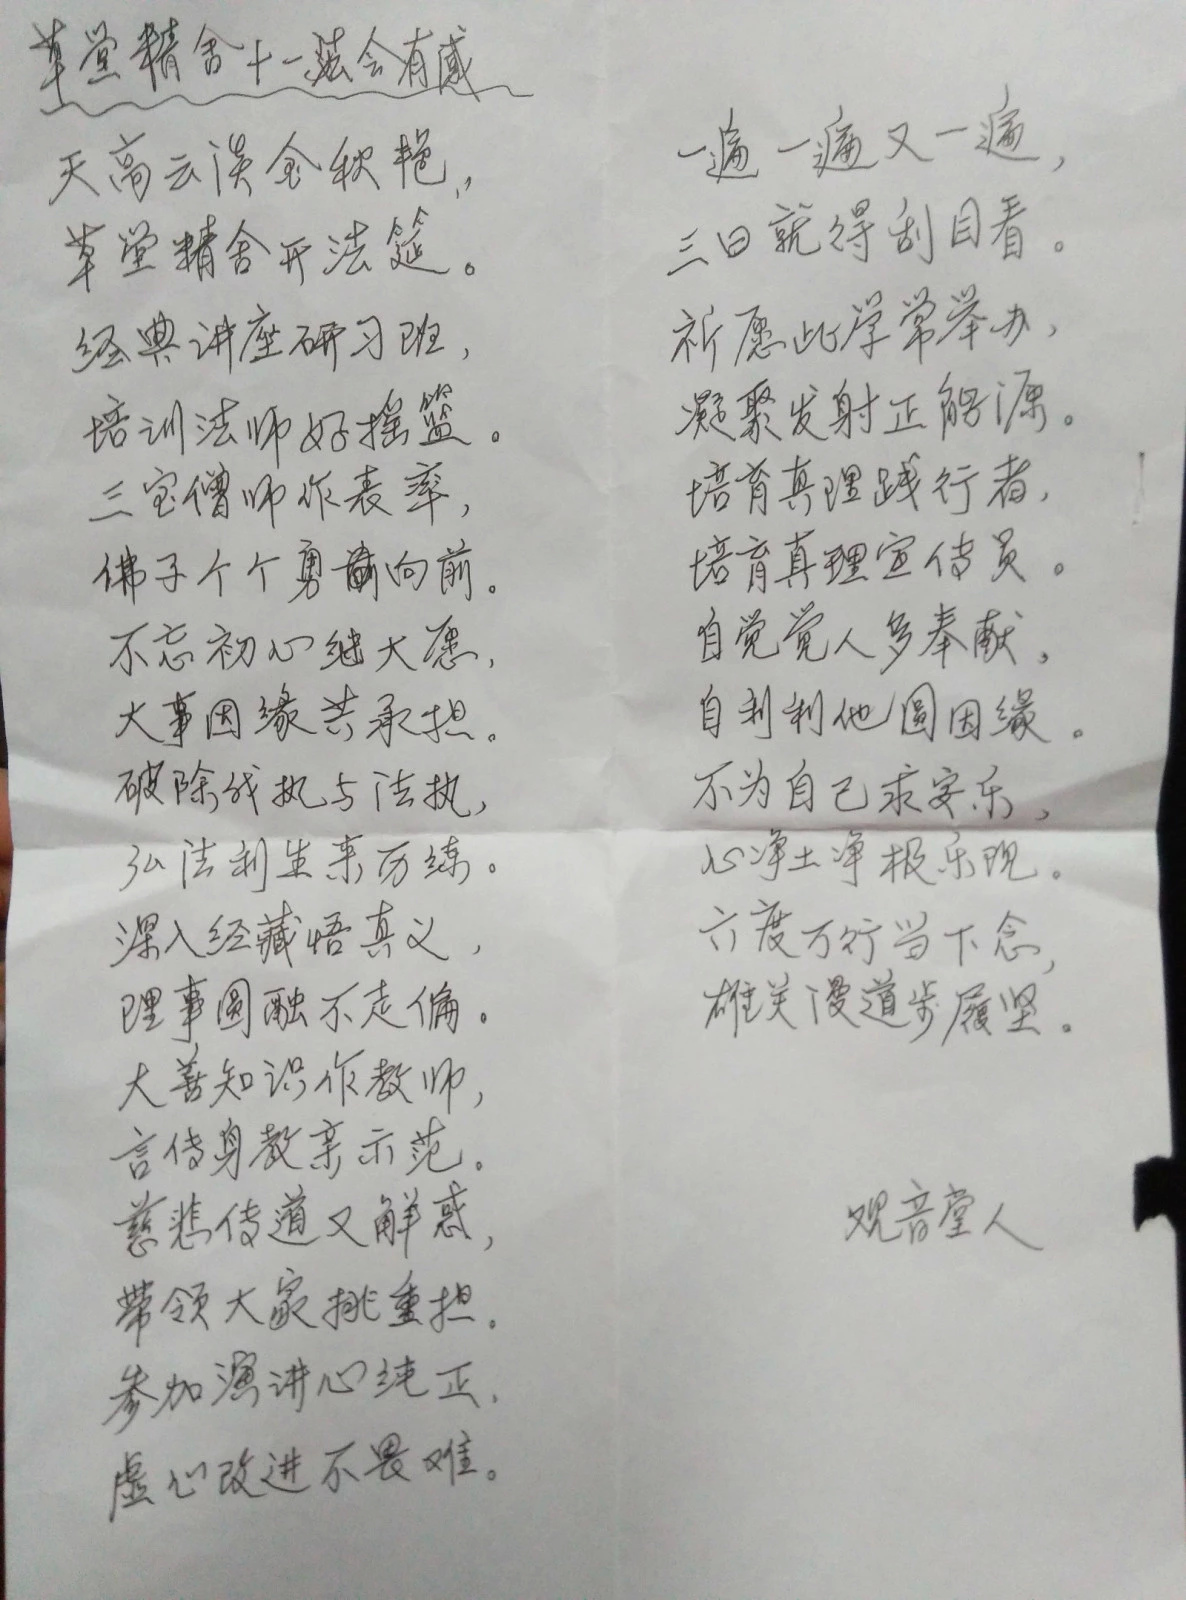 草堂精舍十一法会有感
天高云淡金秋艳，
草堂精舍开法筵。
经典讲座研习班，
培训法师好摇篮。
三宝僧师作表率，
佛子个个勇向前。
不忘初心继大愿，
大事因缘共承担。
破除我执与法执，
弘法利生来历练。
深入经藏悟真义，
理事圆融不走偏。
大善知识作教师，
言传身教亲示范。
慈悲传道又解惑，
带领大家挑重担。
参加演讲心纯正，
虚心改进不畏难。
一遍一遍又一遍，
三日就得刮目看。
祈愿此学常举办，
凝聚发射正能源。
培育真理践行者，
培育真理宣传员。
自觉觉人多奉献，
自利利他圆因缘。
不为自己求安乐，
心净土净极乐现。
六度万行当下念，
雄关漫道步履坚。
观音堂人